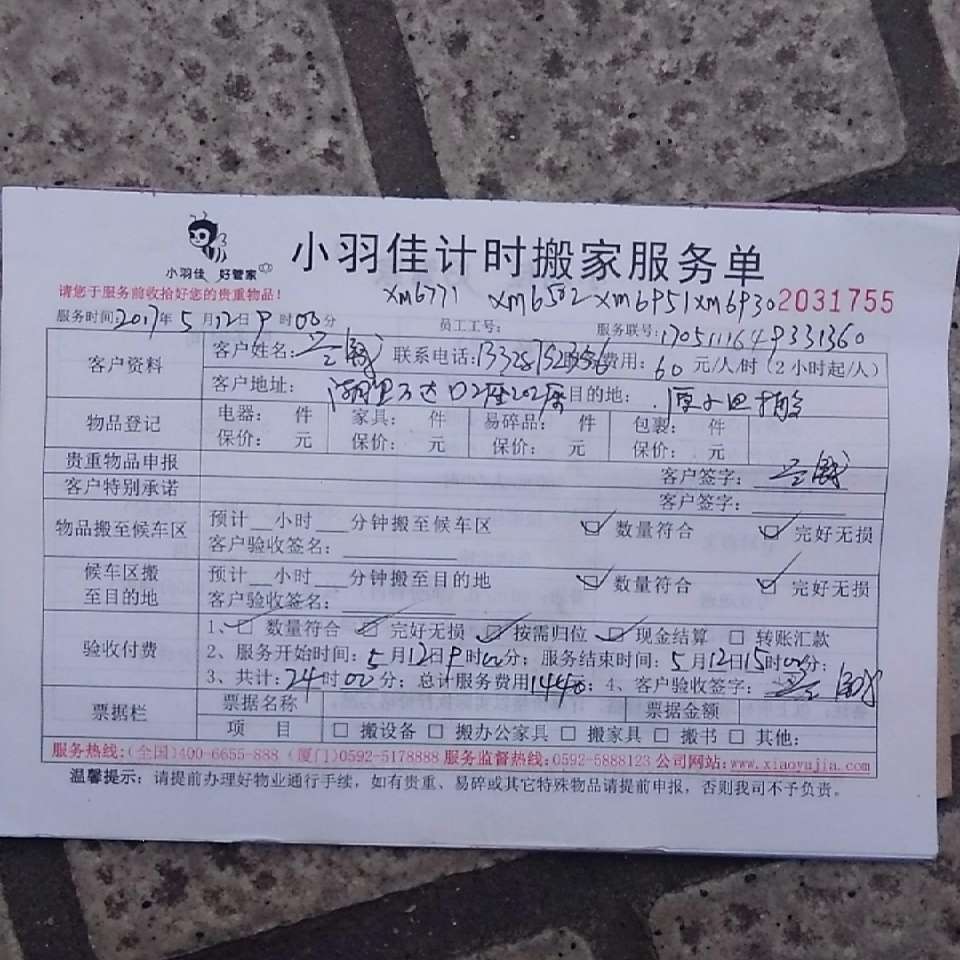 小羽佳 好管家
小羽佳计时搬家服务单
请您于服务前收拾好您的贵重物品！
xm6771 xm6502 xm6951 xm6930 2031755
服务时间:2017年5月12日9时00分 员工工号: 服务联号:1705111649331360
客户资料 客户姓名: 联系电话: 费用: 60元/人/时（2小时起/人）
客户地址: 湖里万达 目的地:
物品登记 电器: 件 家具: 件 易碎品: 件 包裹: 件
保价: 元 保价: 元 保价: 元 保价: 元
贵重物品申报 客户签字:
客户特别承诺 客户签字:
物品搬至候车区 预计__小时___分钟搬至候车区 ☑ 数量符合 ☑ 完好无损
客户验收签名:
候车区搬至目的地 预计__小时___分钟搬至目的地 ☑ 数量符合 ☑ 完好无损
客户验收签名:
验收付费 1、☑ 数量符合 ☑ 完好无损 ☑ 按需归位 ☑ 现金结算 □ 转账汇款
2、服务开始时间: 5月12日9时00分; 服务结束时间: 5月12日15时00分;
3、共计: 24时00分; 总计服务费用1440元; 4、客户验收签字:
票据栏 票据名称 票据金额
项 目 □ 搬设备 □ 搬办公家具 □ 搬家具 □ 搬书 □ 其他:
服务热线:(全国)400-6655-888 (厦门)0592-5178888 服务监督热线:0592-5888123 公司网站:www.xiaoyujia.com
温馨提示: 请提前办理好物业通行手续，如有贵重、易碎或其它特殊物品请提前申报，否则我司不予负责。